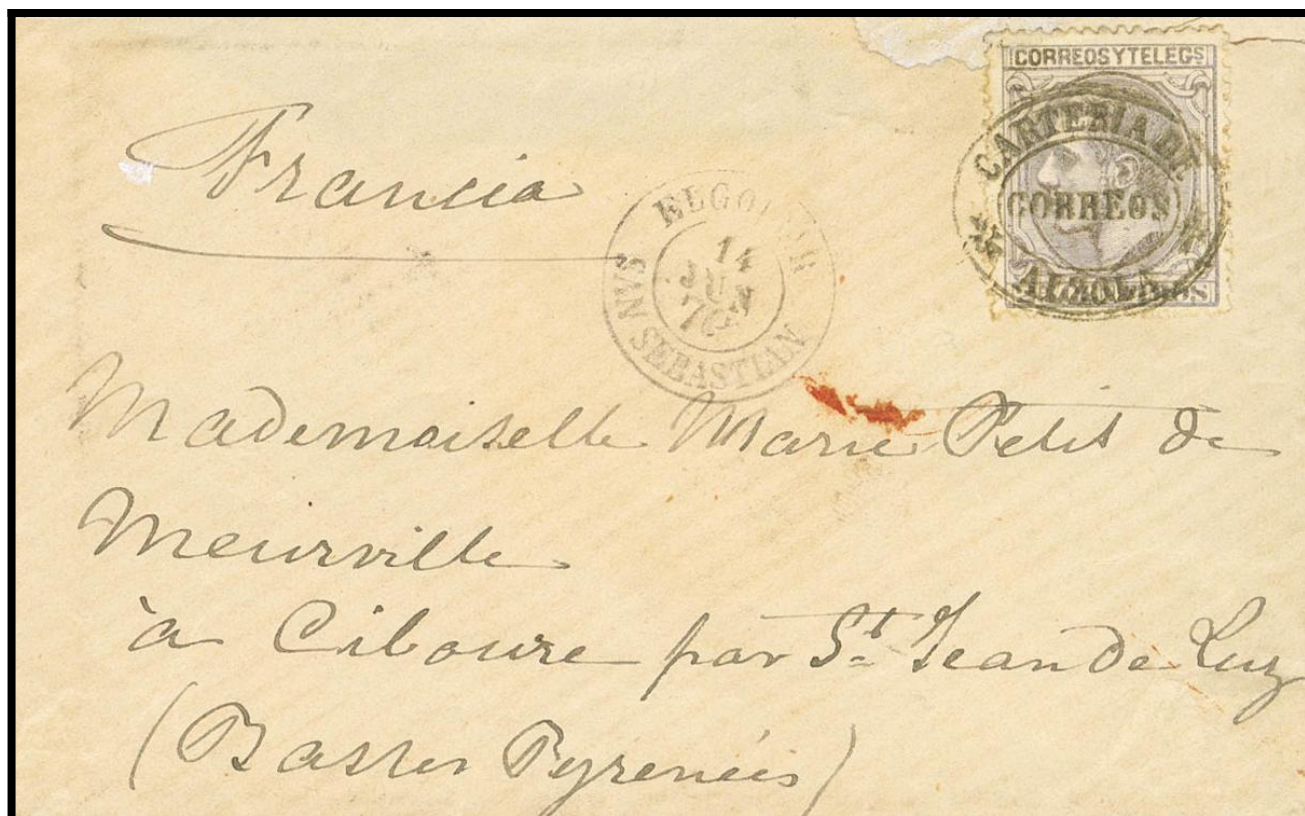 CORREOS Y TELEGS
CARTERIA DE
CORREOS
ALZOLA
Francia
ELGOIBAR
14
JUN
SAN SEBASTIAN
Mademoiselle Marie Petit de
Meurville
à Ciboure par St Jean de Luz
(Basses Pyrénées)